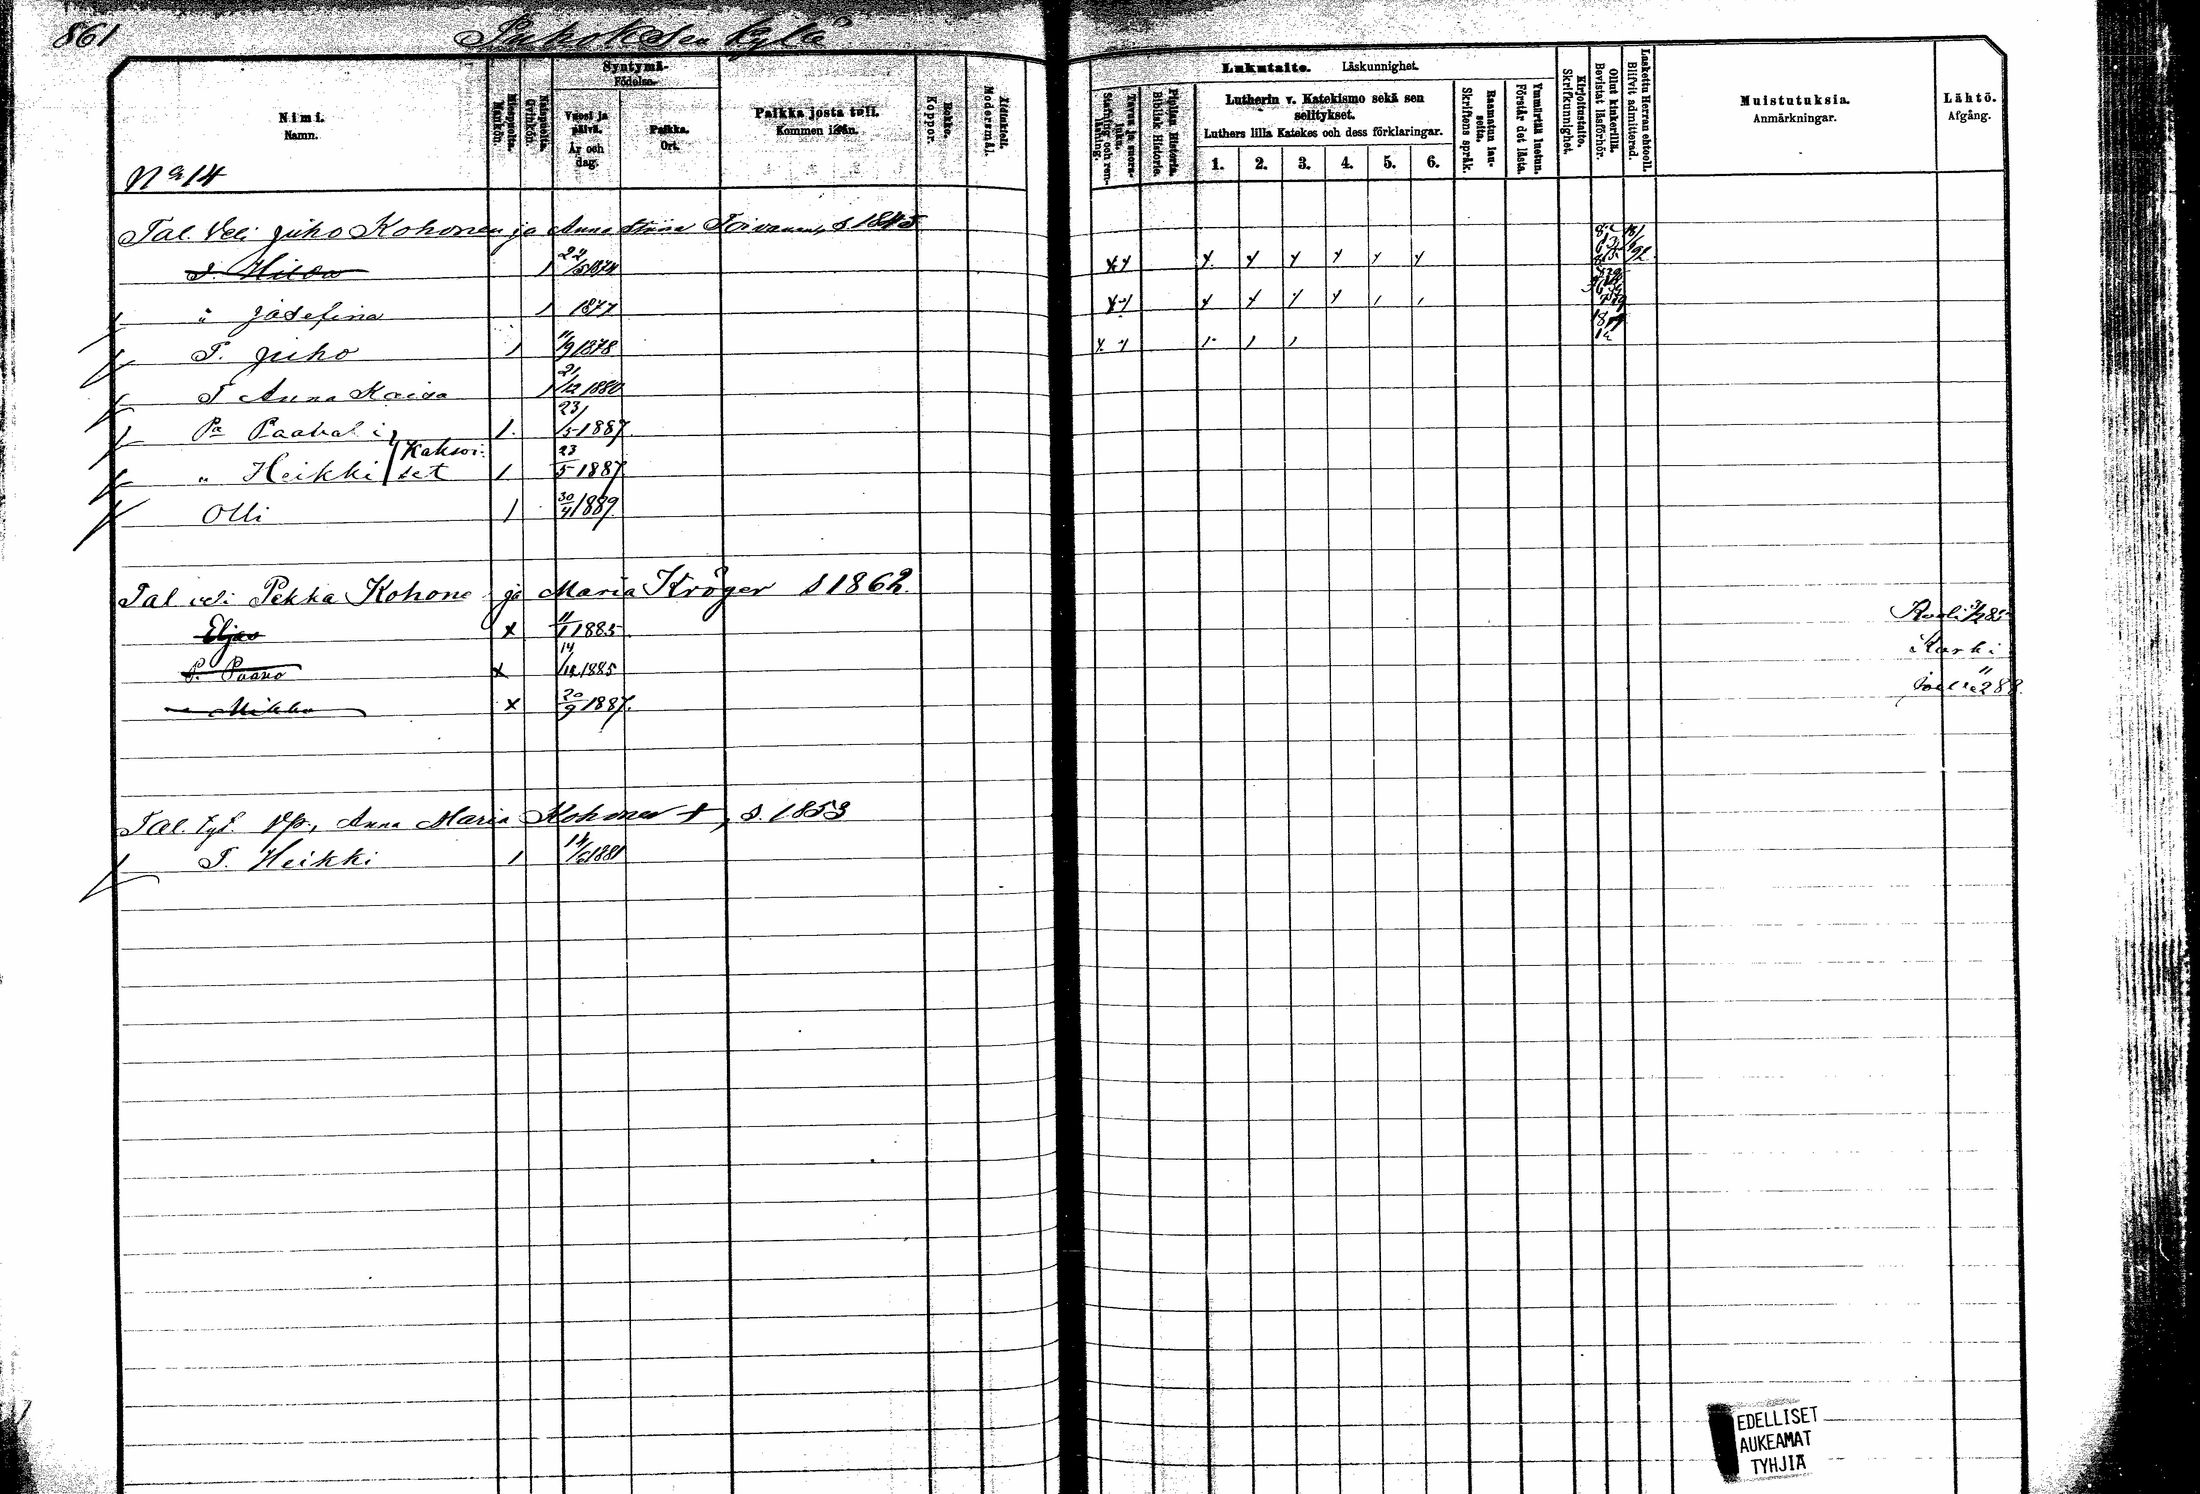 861
kylä
Syntymä-
Födelse-
Nimi.
Namn.
Miespuolia.
Mankön.
Naispuolia.
Qvinkön.
Vuosi ja päivä.
År och dag.
Paikka.
Ort.
Paikka josta tuli.
Kommen ifrån.
Rokko.
Koppor.
Äidinkieli.
Modersmål.
Lukutaito. Läskunnighet.
Piplian Historia.
Biblisk Historia.
Lutherin v. Katekismo sekä sen selitykset.
Luthers lilla Katekes och dess förklaringar.
1. 2. 3. 4. 5. 6.
Skriftens språk.
Ymmärtää luetun.
Förstår det lästa.
Kirjoitustaito.
Skrifkunnighet.
Ollut kinkerillä.
Bevistat läsförhör.
Laskettu Herran ehtooll.
Blifvit admitterad.
Muistutuksia.
Anmärkningar.
Lähtö.
Afgång.
No 14
Tal. Veli Juho Kohonen ja Anna Stiina Toivanen, s 1845
Hilda 1
" Josefina 1 1877
T. Juho 1 11/9 1878
T Anna Kaisa 1 21/12 1880
Pa Paavali 1. 23/5 1887
" Heikki Kaksoi- set 1. 23/5 1887
Olli 1 30/4 1889
Tal veli Pekka Kohone ja Maria Kröger s 1862.
Eljas x 11/1 1885
P. Paavo x 14/12 1885
Mikko x 20/9 1887.
Tal. tyt. vp., Anna Maria Kohonen +, s. 1853
T. Heikki 1 14/6 1881
EDELLISET
AUKEAMAT
TYHJIÄ